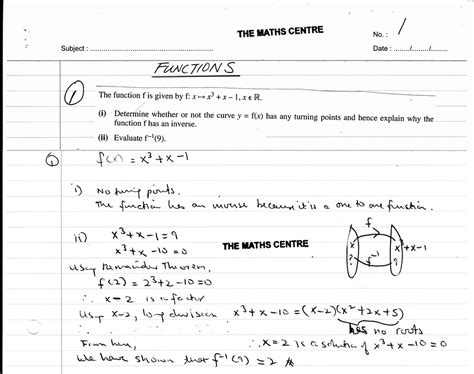 THE MATHS CENTRE
No. : 1
Subject : ........................................ Date : ......../......../........
FUNCTIONS
1
The function f is given by f: x ↦ x³ + x − 1, x ∈ ℝ.
(i) Determine whether or not the curve y = f(x) has any turning points and hence explain why the
function f has an inverse.
(ii) Evaluate f⁻¹(9).
1 f(x) = x³ + x − 1
i) No turning points.
The function has an inverse because it is a one to one function.
ii) x³ + x − 1 = 9
x³ + x − 10 = 0
THE MATHS CENTRE
f
x x³+x−1
f⁻¹
? 9
Using Remainder Theorem,
f(2) = 2³ + 2 − 10 = 0
∴ x − 2 is a factor
Using x−2, long division x³ + x − 10 = (x−2)(x² + 2x + 5)
has no roots
From here, ∴ x = 2 is a solution of x³ + x − 10 = 0
We have shown that f⁻¹(9) = 2